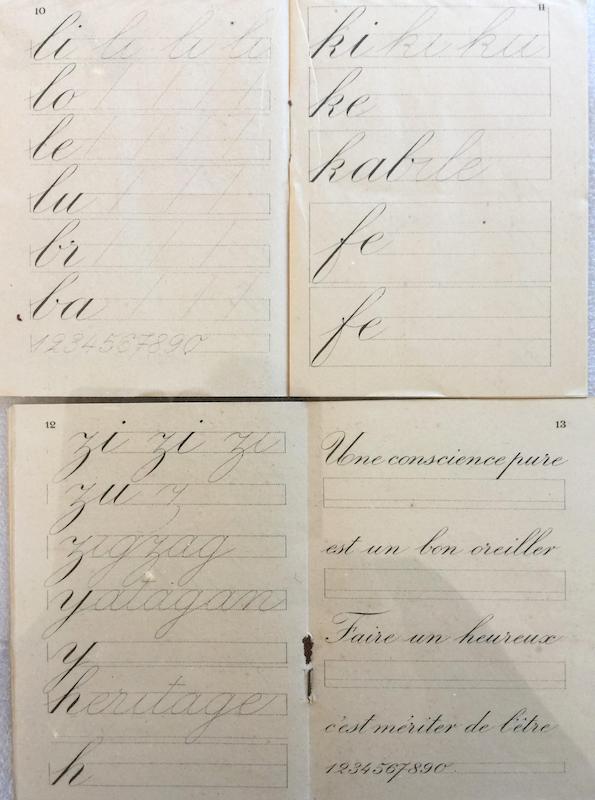 10
li li li li
lo
le
lu
br
ba
1234567890
11
ki ki ku
ke
kabile
fe
fe
12
zi zi zi
zu z
zigzag
yatagan
y
heritage
h
13
Une conscience pure
est un bon oreiller
Faire un heureux
c'est mériter de l'être
1234567890